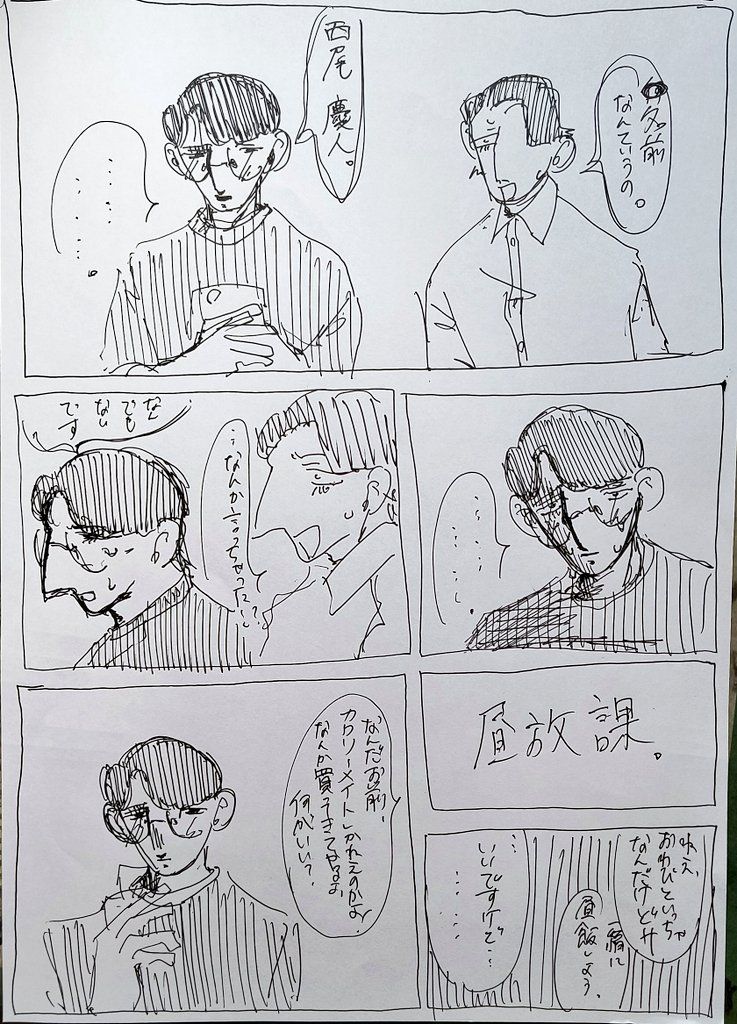 名前
なんていうの。
西尾 慶人。
・・・・・・。
・・・・・・。
…なんか言っちゃった…?
なん
でも
ない
です
昼放課。
ねえ、
おわびといっちゃ
なんだけどサ
一緒に
昼飯しよう。
…
いいですけど…
・・・・
なんだお前、
カロリーメイトしかねえのかよ
なんか買ってきてやるよ
何がいい?